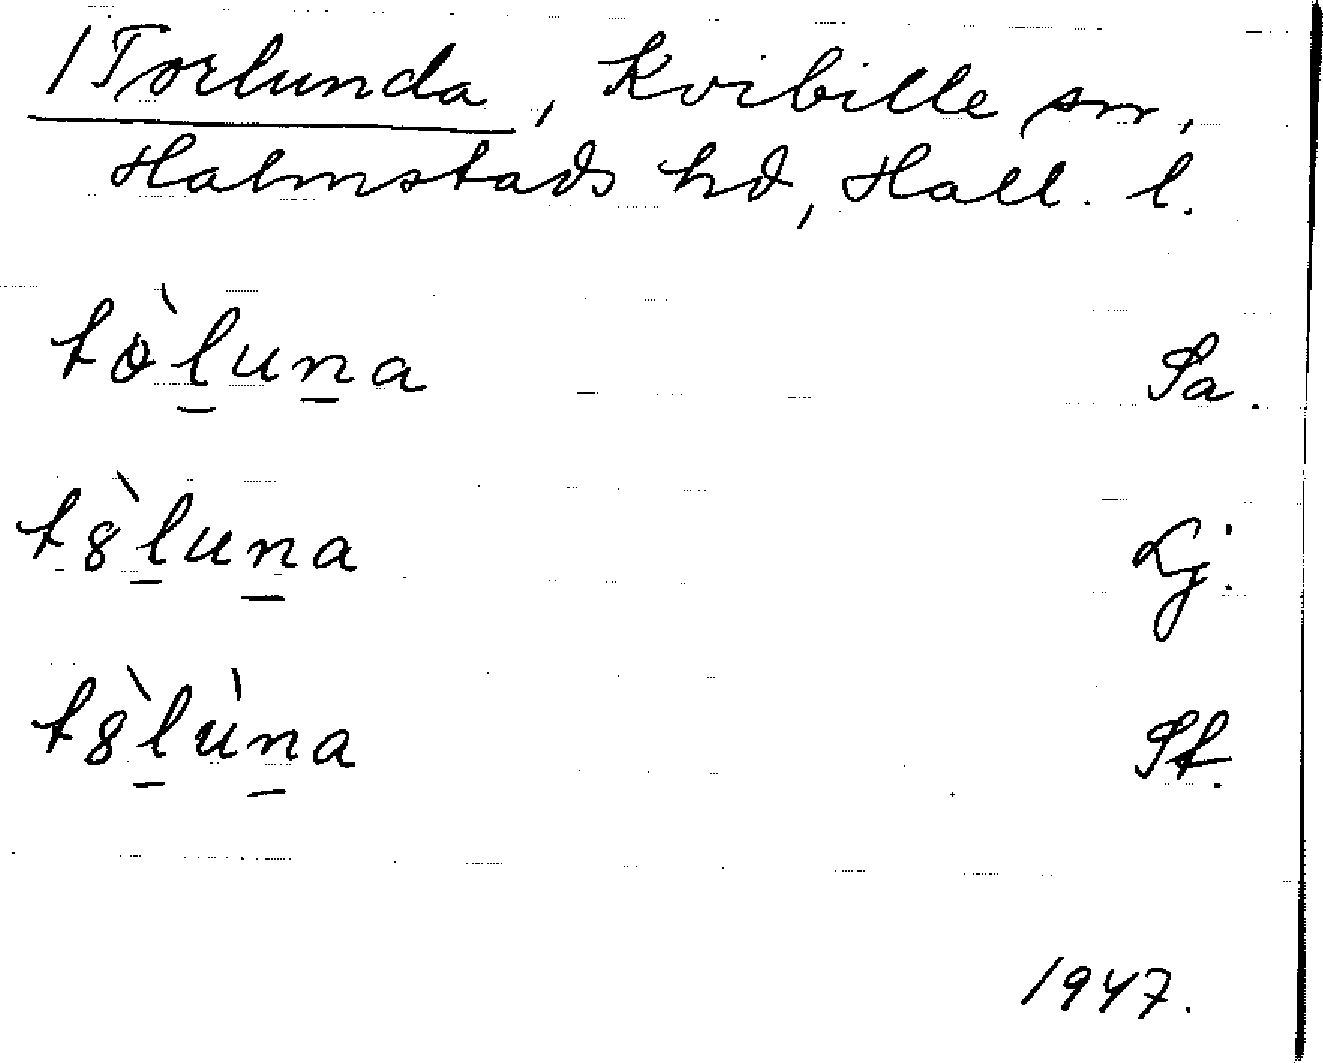 /Torlunda, Kvibille sn,
Halmstads hd, Hall. l.
to̊̀l̲un̲a Sa.
t8̀l̲un̲a Lj.
t8̀l̲ùn̲a St.
1947.